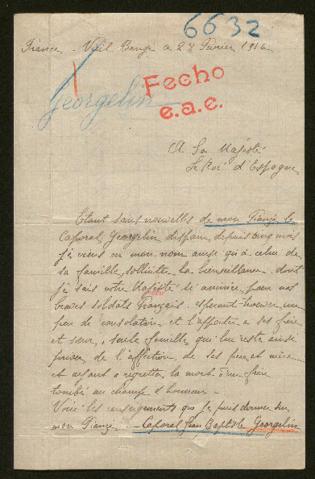 6632
France - Vieil Bougé 28 Février 1916
Fecho
e.a.e.
Georgelin
A Sa Majesté
Le Roi d'Espagne
Etant sans nouvelles de mon Fiancé le
Caporal Georgelin disparu depuis cinq mois
je viens en mon nom ainsi qu'à celui de
sa famille, solliciter la bienveillance dont
je sais votre Majesté animée pour nos
braves soldats Français. espérant trouver un
peu de consolation et l'apporter a ses frère
et sœur, seule famille qui lui reste ainsi
privée de l'affection de ses père et mère
et ayant a regretter la mort d'un frère
tombé au champ d'honneur -
Voici les renseignements que je puis donner sur
mon Fiancé - Caporal Jean Baptiste Georgelin